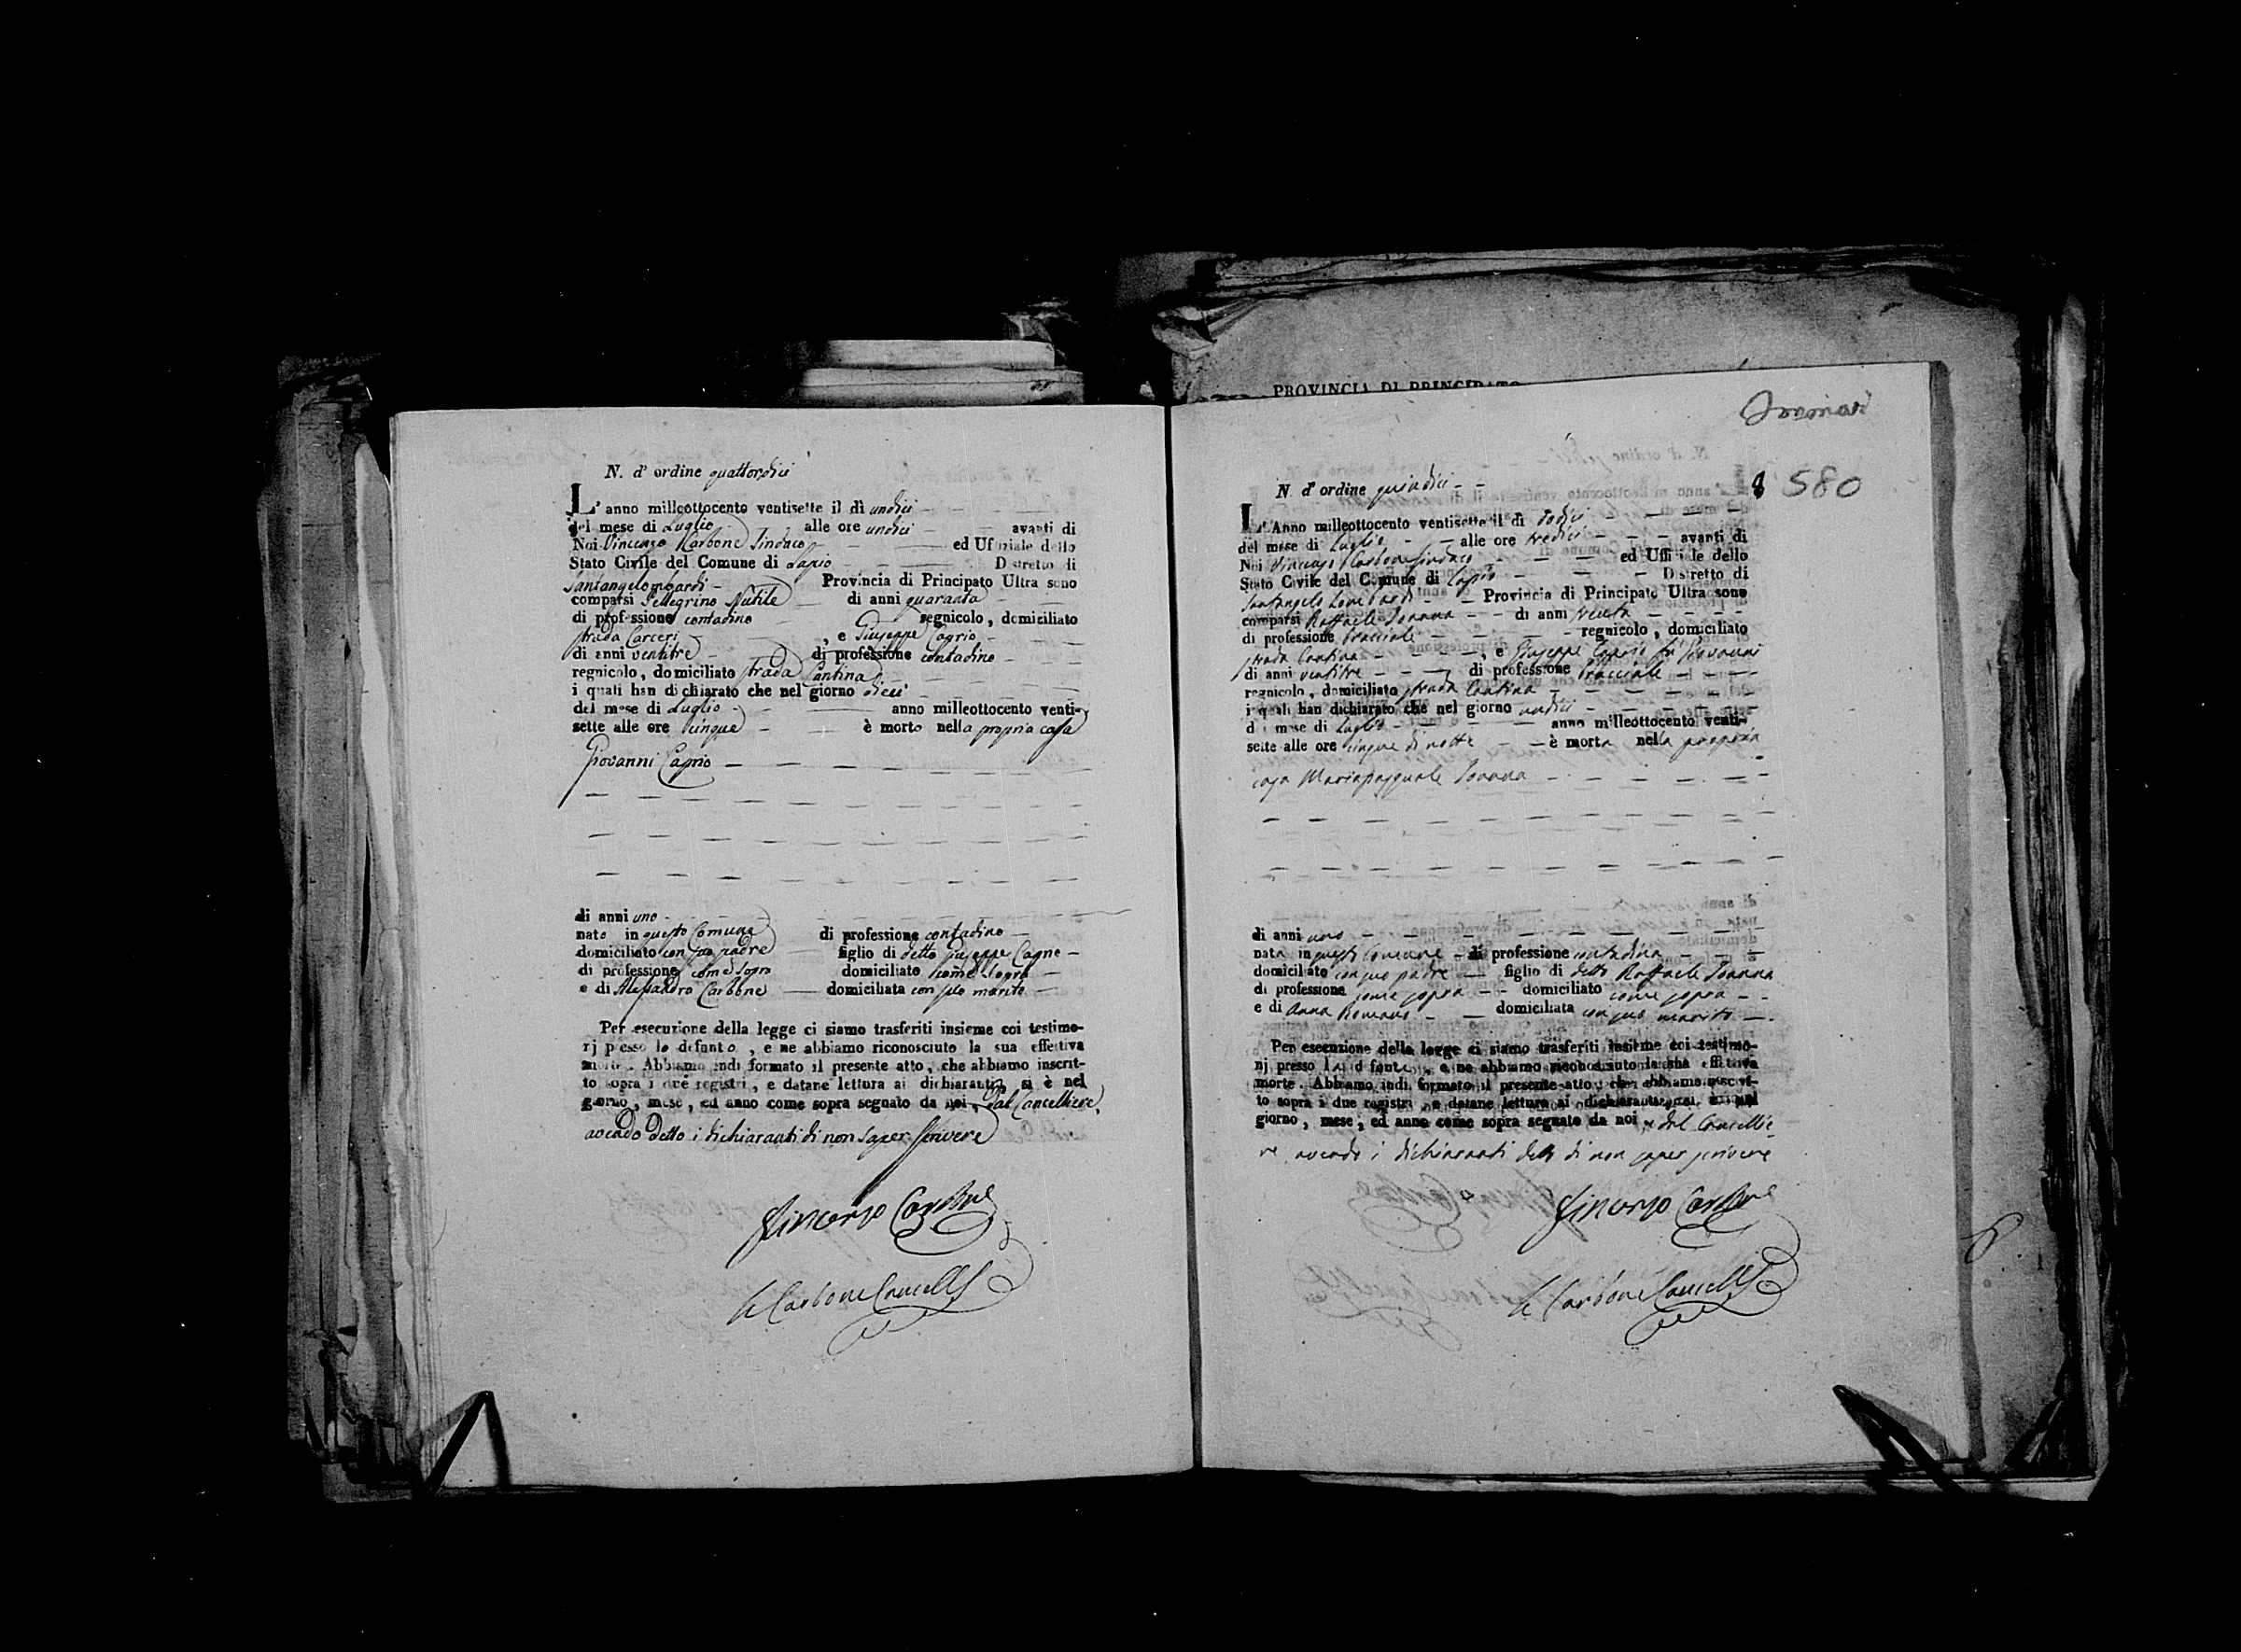 N. d' ordine quattordici
L' anno milleottocento ventisette il dì undici
del mese di Luglio alle ore undici avanti di
Noi Vincenzo Carbone Sindaco ed Uffiziale dello
Stato Civile del Comune di Lapio Distretto di
Santangelolombardi Provincia di Principato Ultra sono
comparsi Pellegrino Nutile di anni quaranta
di professione contadino regnicolo, domiciliato
strada Carceri, e Giuseppe Caprio
di anni ventitre di professione contadino
regnicolo, domiciliato strada Cantina
i quali han dichiarato che nel giorno dieci
del mese di Luglio anno milleottocento venti-
sette alle ore cinque è morto nella propria casa
Giovanni Caprio
di anni uno
nato in questo Comune di professione contadino
domiciliato con suo padre figlio di detto Giuseppe Caprio
di professione come sopra domiciliato come sopra
e di Alessandra Carbone domiciliata con suo marito
Per esecuzione della legge ci siamo trasferiti insieme coi testimo-
nj presso lo defunto, e ne abbiamo riconosciuto la sua effettiva
morte. Abbiamo indi formato il presente atto, che abbiamo inscrit-
to sopra i due registri, e datane lettura ai dichiaranti, si è nel
giorno, mese, ed anno come sopra segnato da noi, dal Cancelliere,
avendo detto i dichiaranti di non saper scrivere
Vincenzo Carbone
Carbone Cancell
PROVINCIA DI PRINCIPATO
580
N. d' ordine quindici
L' Anno milleottocento ventisette il dì dodici
del mese di Luglio alle ore tredici avanti di
Noi Vincenzo Carbone Sindaco ed Uffiziale dello
Stato Civile del Comune di Lapio Distretto di
Santangelo Lombardi Provincia di Principato Ultra sono
comparsi Raffaele Ioanna di anni trenta
di professione bracciale regnicolo, domiciliato
strada Cantina, e Giuseppe Caprio fu Giovanni
di anni ventitre di professione bracciale
regnicolo, domiciliato strada Cantina
i quali han dichiarato che nel giorno undici
del mese di Luglio anno milleottocento venti-
sette alle ore cinque di notte è morta nella propria
casa Mariapasquale Ioanna
di anni uno
nata in questo Comune di professione contadina
domiciliato con suo padre figlio di detto Raffaele Ioanna
di professione come sopra domiciliato come sopra
e di Anna Romano domiciliata con suo marito
Per esecuzione della legge ci siamo trasferiti insieme coi testimo-
nj presso la defunta, e ne abbiamo riconosciuto la sua effettiva
morte. Abbiamo indi formato il presente atto, che abbiamo inscrit-
to sopra i due registri, e datane lettura ai dichiaranti, si è nel
giorno, mese, ed anno come sopra segnato da noi, e dal Cancellie-
re avendo i dichiaranti detto di non saper scrivere
Vincenzo Carbone
Carbone Cancell